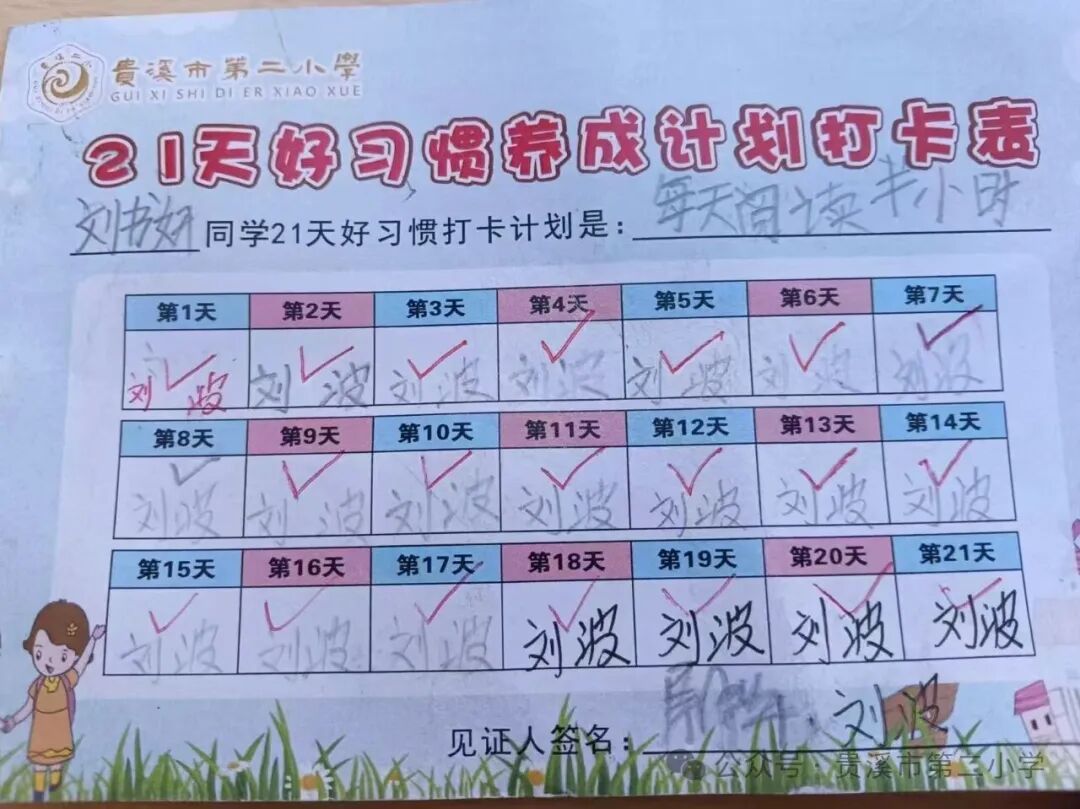 貴溪市第二小學
GUI XI SHI DI ER XIAO XUE
21天好习惯养成计划打卡表
刘书妍 同学21天好习惯打卡计划是: 每天阅读半小时
第1天 第2天 第3天 第4天 第5天 第6天 第7天
刘波 刘波 刘波 刘波 刘波 刘波 刘波
第8天 第9天 第10天 第11天 第12天 第13天 第14天
刘波 刘波 刘波 刘波 刘波 刘波 刘波
第15天 第16天 第17天 第18天 第19天 第20天 第21天
刘波 刘波 刘波 刘波 刘波 刘波 刘波
见证人签名: 刘波
公众号·贵溪市第二小学